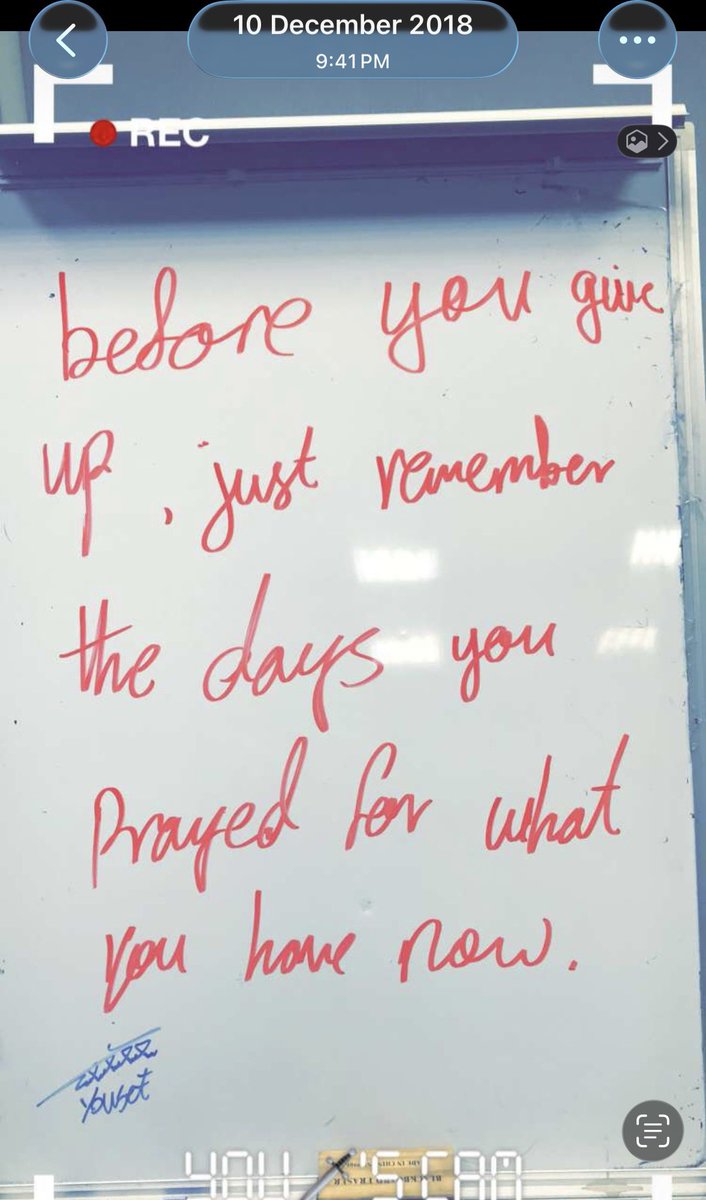 10 December 2018
9:41 PM
REC
before you give
up, just remember
the days you
Prayed for what
you have now.
'S CAM